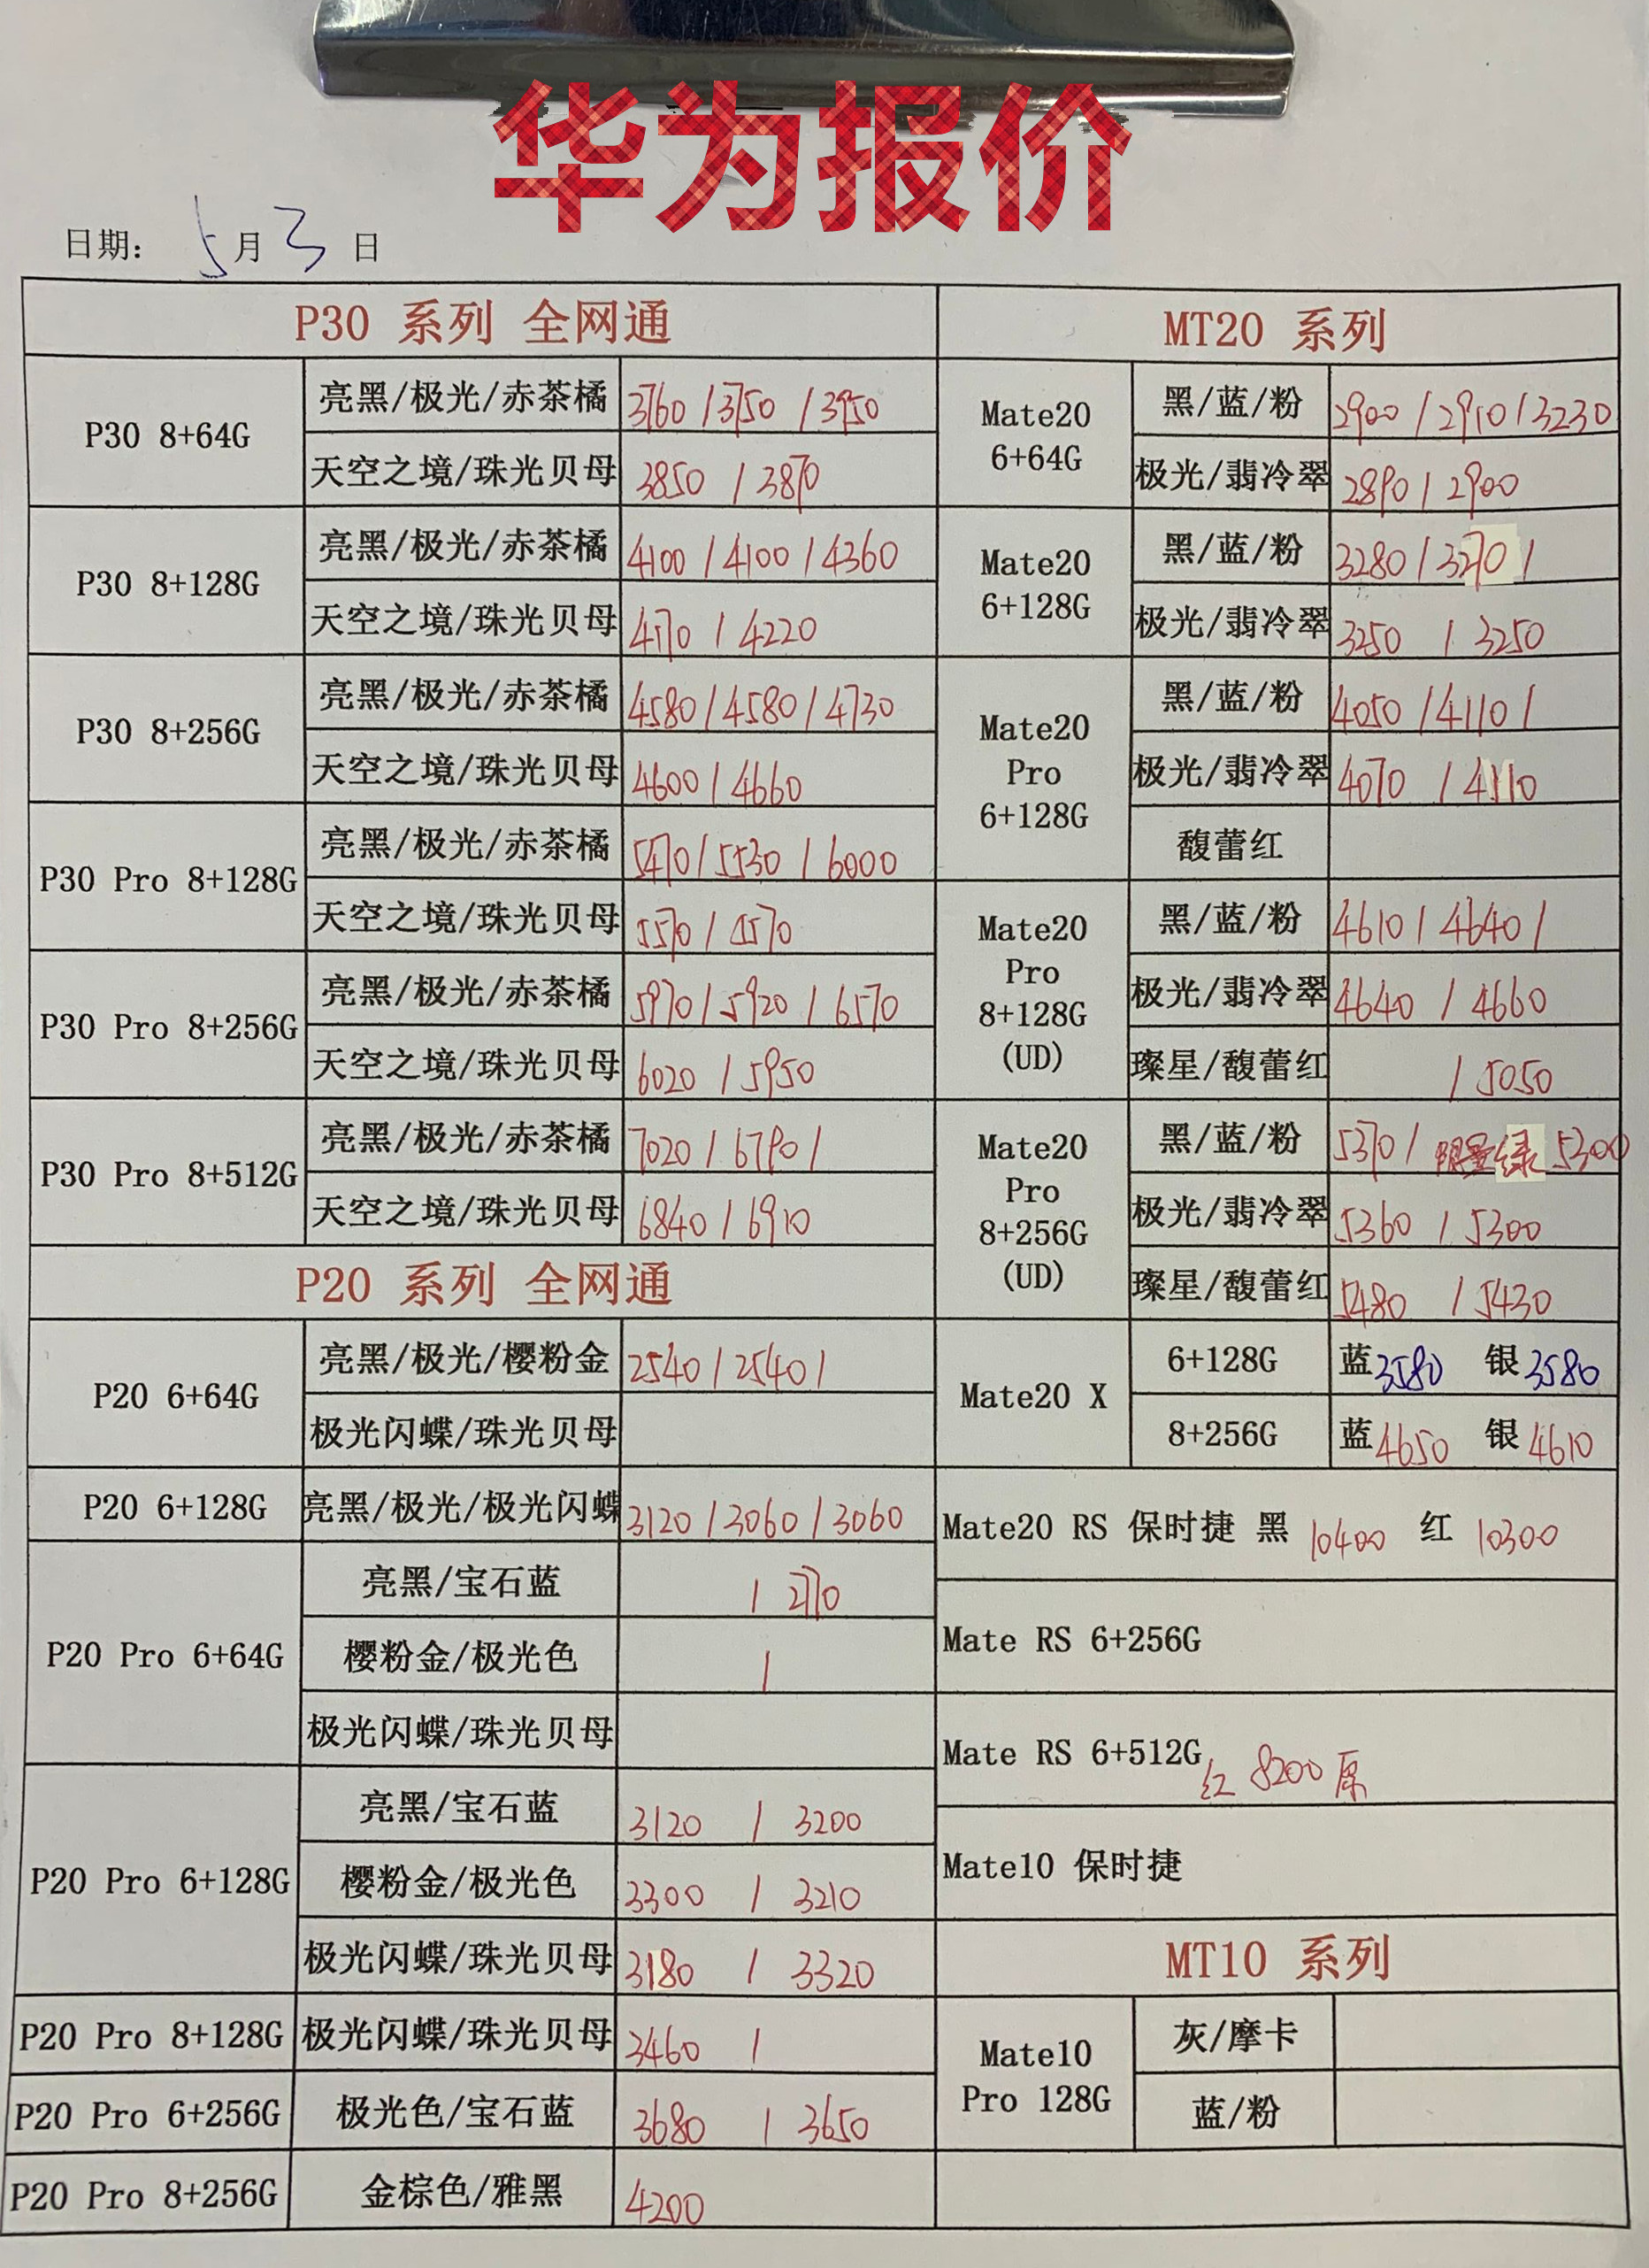 华为报价
日期: 5月3日
P30 系列 全网通
P30 8+64G
亮黑/极光/赤茶橘 3760/3750/3950
天空之境/珠光贝母 3850/3870
P30 8+128G
亮黑/极光/赤茶橘 4100/4100/4360
天空之境/珠光贝母 4170/4220
P30 8+256G
亮黑/极光/赤茶橘 4580/4580/4730
天空之境/珠光贝母 4600/4660
P30 Pro 8+128G
亮黑/极光/赤茶橘 5470/5530/6000
天空之境/珠光贝母 5570/5570
P30 Pro 8+256G
亮黑/极光/赤茶橘 5970/5920/6570
天空之境/珠光贝母 6020/5950
P30 Pro 8+512G
亮黑/极光/赤茶橘 7020/6790/
天空之境/珠光贝母 6840/6910
P20 系列 全网通
P20 6+64G
亮黑/极光/樱粉金 2540/2540/
极光闪蝶/珠光贝母
P20 6+128G
亮黑/极光/极光闪蝶 3120/3060/3060
P20 Pro 6+64G
亮黑/宝石蓝 /2770
樱粉金/极光色 /
极光闪蝶/珠光贝母
P20 Pro 6+128G
亮黑/宝石蓝 3120/3200
樱粉金/极光色 3300/3210
极光闪蝶/珠光贝母 3180/3320
P20 Pro 8+128G
极光闪蝶/珠光贝母 3460/
P20 Pro 6+256G
极光色/宝石蓝 3680/3650
P20 Pro 8+256G
金棕色/雅黑 4200
MT20 系列
Mate20
6+64G
黑/蓝/粉 2900/2910/3230
极光/翡冷翠 2890/2900
Mate20
6+128G
黑/蓝/粉 3280/3270/
极光/翡冷翠 3250/3250
Mate20
Pro
6+128G
黑/蓝/粉 4050/4110/
极光/翡冷翠 4070/4110
馥蕾红
Mate20
Pro
8+128G
(UD)
黑/蓝/粉 4610/4640/
极光/翡冷翠 4640/4660
璨星/馥蕾红 /5050
Mate20
Pro
8+256G
(UD)
黑/蓝/粉 5370/ 限量绿 5300
极光/翡冷翠 5360/5300
璨星/馥蕾红 5480/5430
Mate20 X
6+128G 蓝3580 银3580
8+256G 蓝4650 银4610
Mate20 RS 保时捷 黑 10400 红 10300
Mate RS 6+256G
Mate RS 6+512G 红 8200 原
Mate10 保时捷
MT10 系列
Mate10
Pro 128G
灰/摩卡
蓝/粉